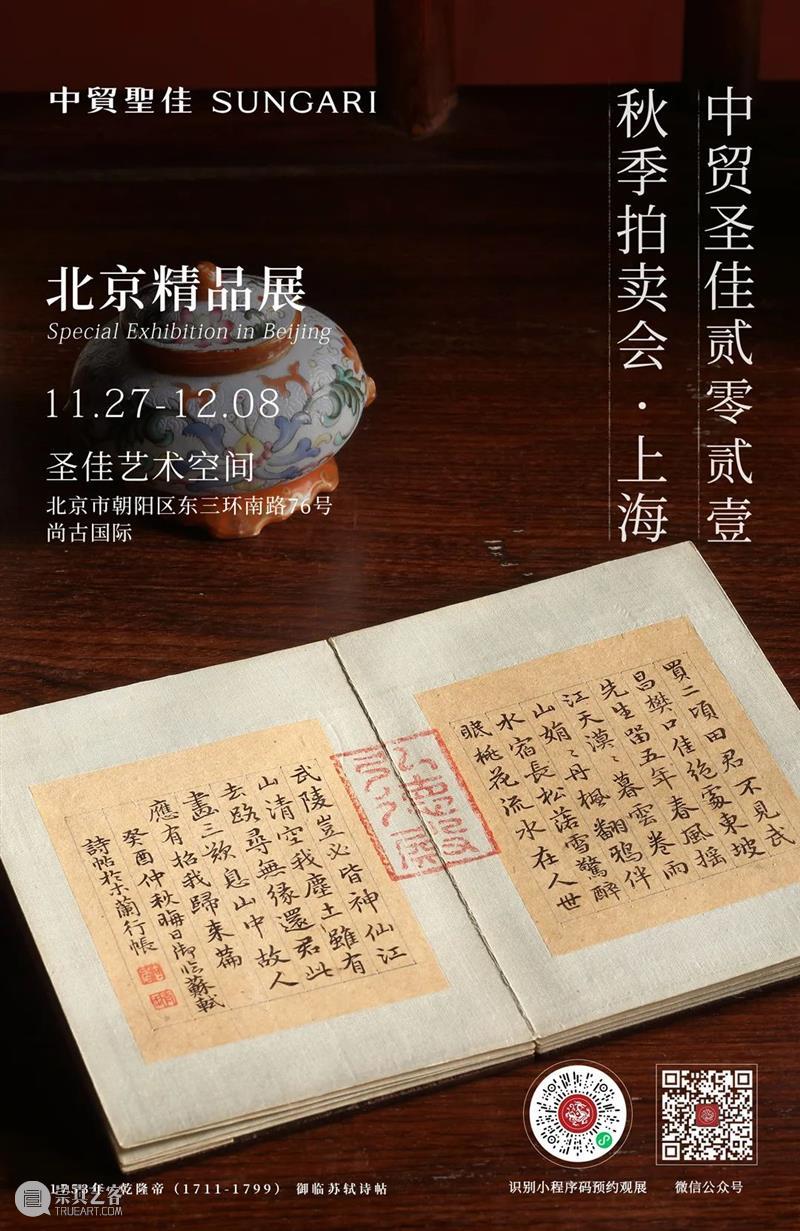 中貿聖佳 SUNGARI
中贸圣佳贰零贰壹
秋季拍卖会·上海
北京精品展
Special Exhibition in Beijing
11.27-12.08
圣佳艺术空间
北京市朝阳区东三环南路76号
尚古国际
買二頃田君不見武
昌樊口佳絕處東坡
先生留五年春風搖
江天漠〻暮雲卷雨
山娟〻丹楓翻鴉伴
水宿長松落雪驚醉
眠桃花流水在人世
武陵豈必皆神仙江
山清空我塵土雖有
去路尋無緣還君此
畫三歎息山中故人
應有招我歸来篇
癸酉仲秋晦日御臨蘇軾
詩帖於木蘭行帳
1753年 乾隆帝（1711-1799） 御临苏轼诗帖
识别小程序码预约观展
微信公众号
崇真艺客
TRUEART.COM